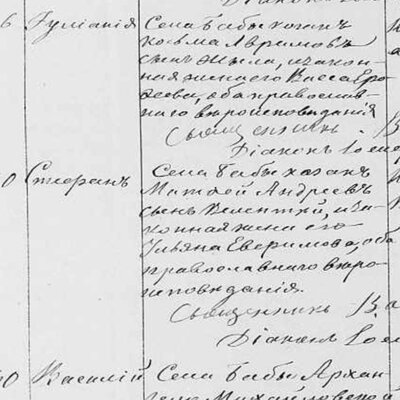 Діаконъ
6 Іуліанія Села Бабы козак
козьма Авримовъ
сынъ Жыла, и закон-
ная жена его Васса Еро-
феева, оба православ-
наго вѣроисповѣданія
Священникъ
Діаконъ Іосиф
0 Стефанъ Села Бабы хазак
Матѳей Андреевъ
сынъ Велентій, и за-
конная жена его
Ульяна Евфримова, оба
православнаго вѣро-
исповѣданія.
Священникъ Ва
Діаконъ Іоси
0 Василій Села Бабы Архан
Михайловской